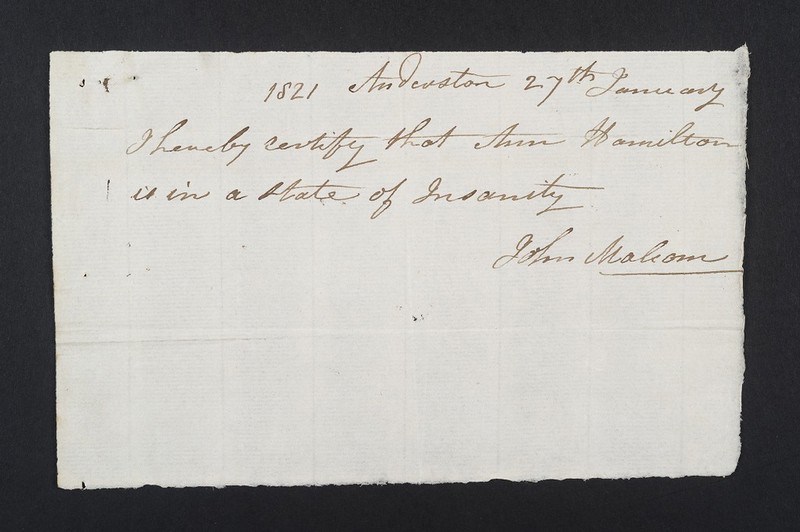 1821 Anderston 27th January
I hereby certify that Ann Hamilton
is in a state of Insanity
John Malcom